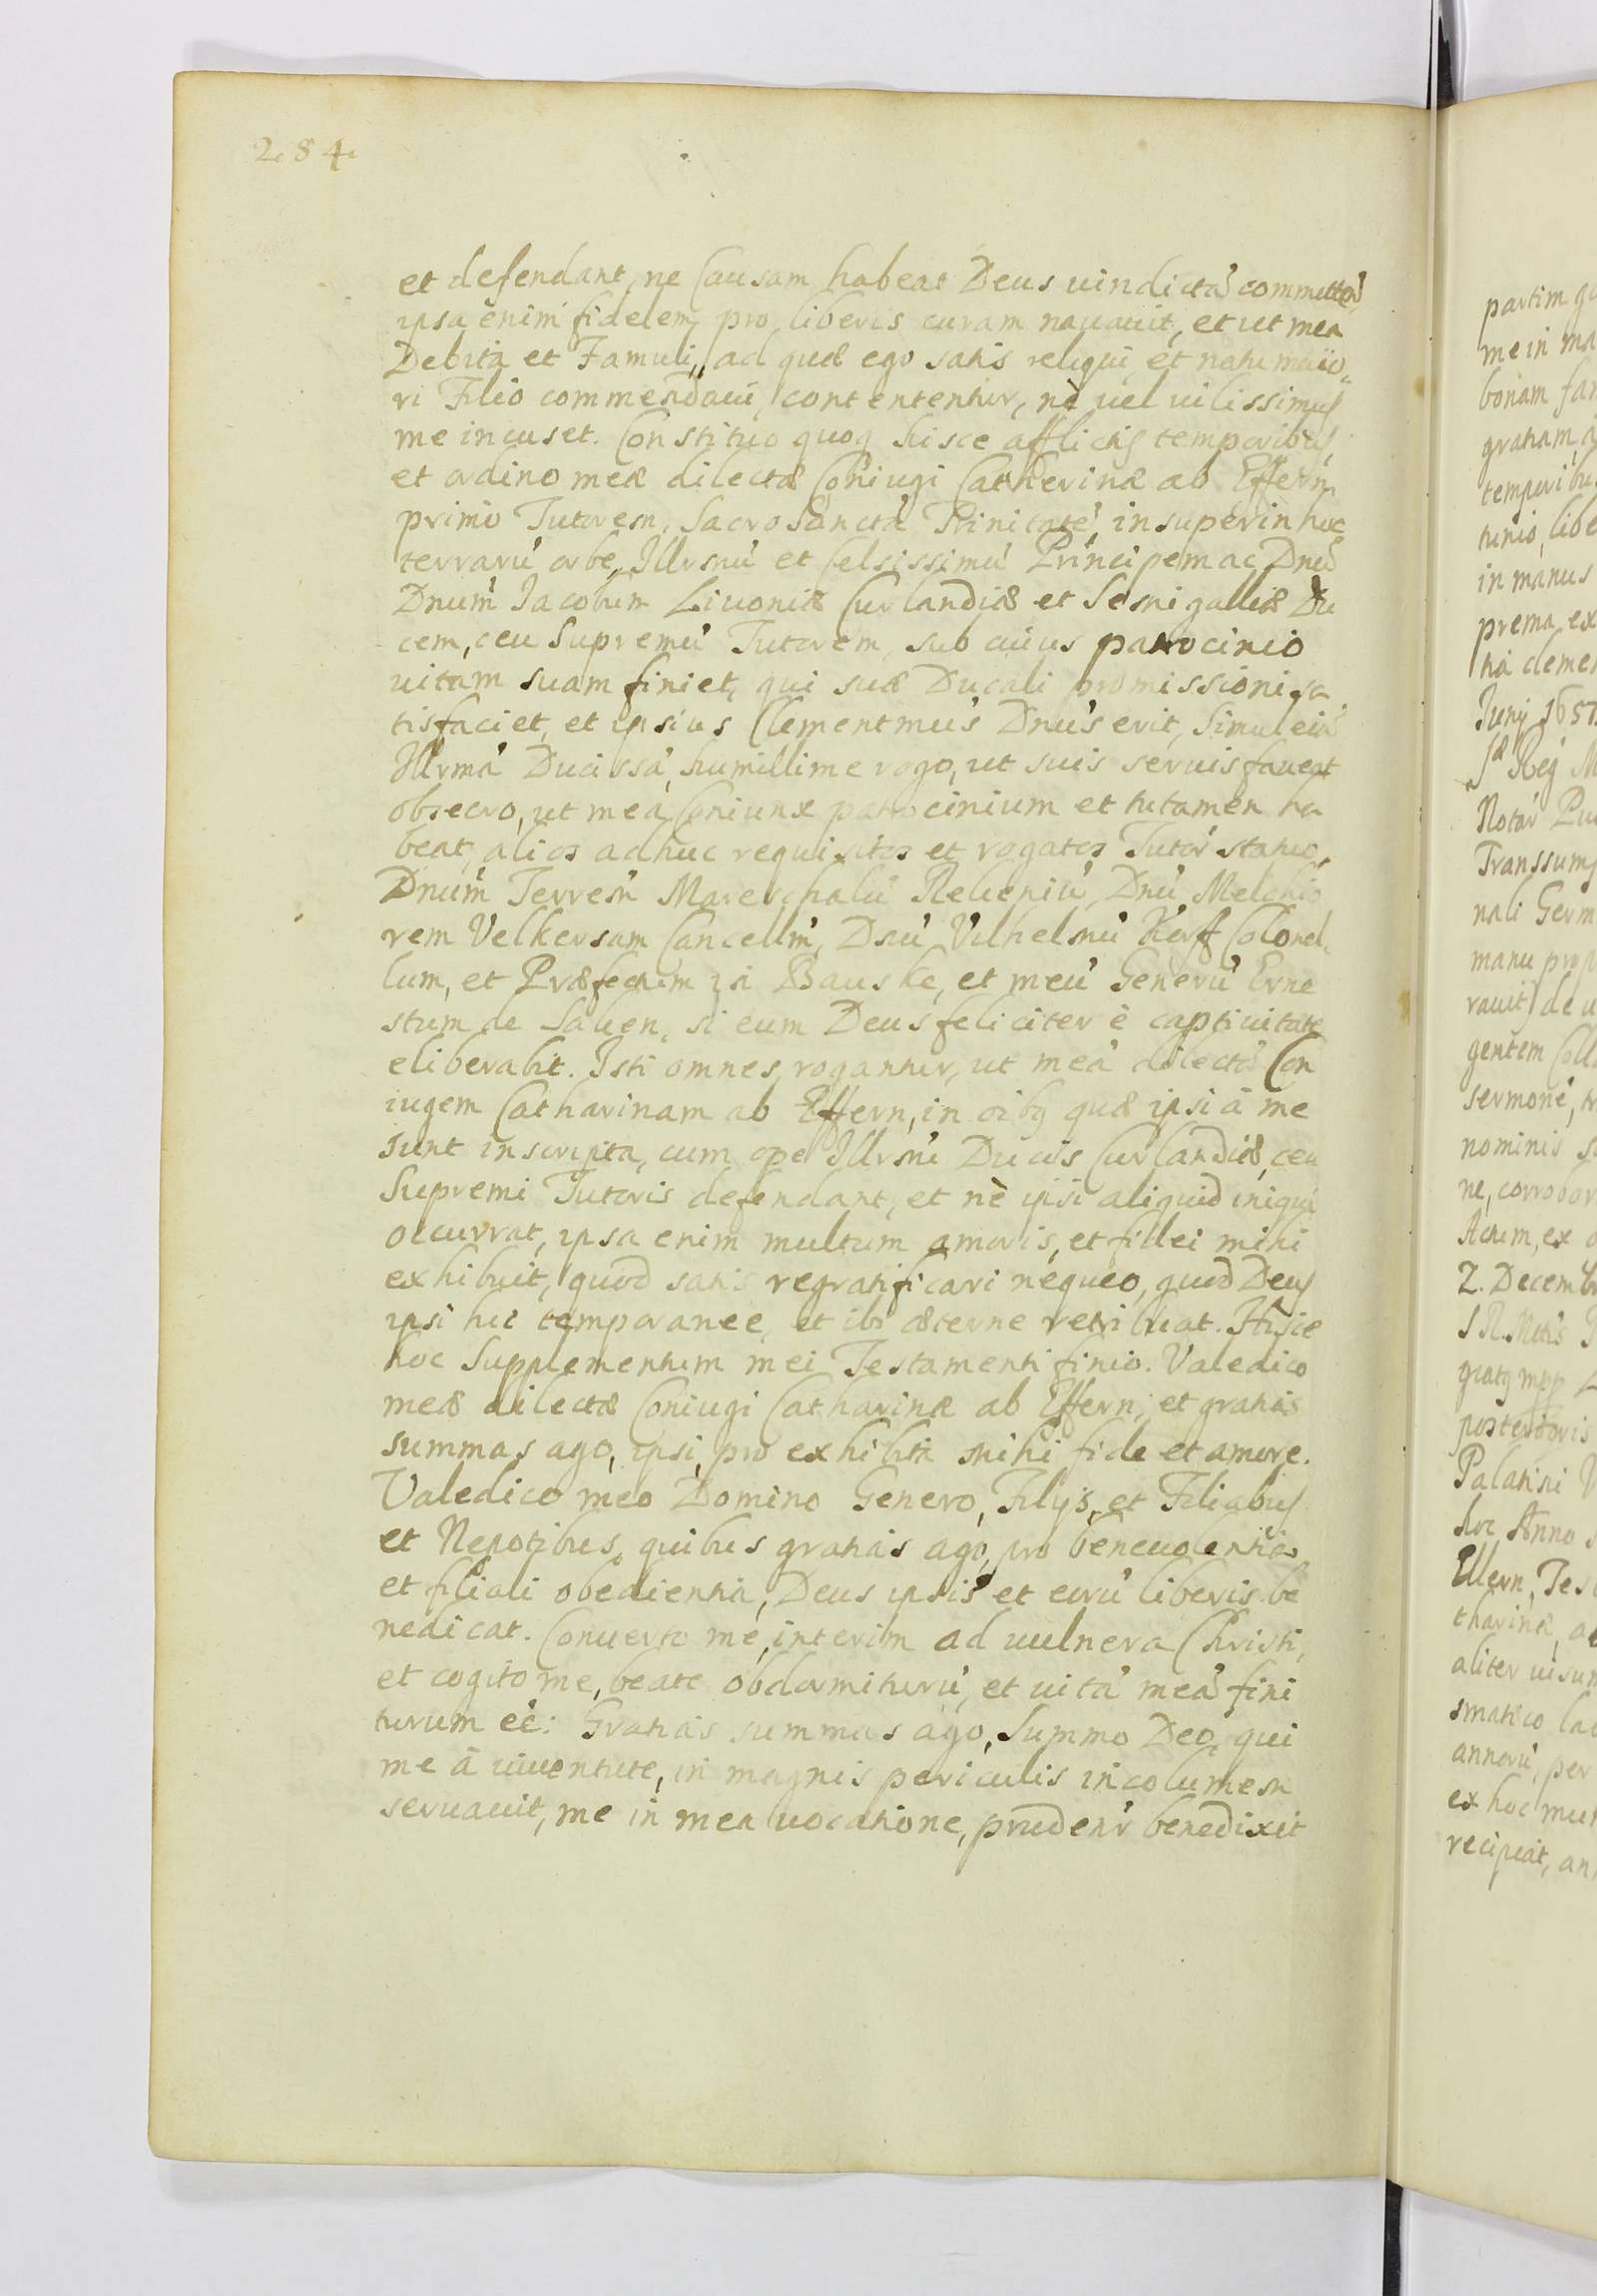 284
et defendant, ne Causam habeat Deus vindictā committendi,
ipsa enim fidelem pro liberis curam nauauit, et ut mea
Debita et Famuli, ad quæ ego satis reliqui, et natu maio„
ri Filio commendaui, contententur, nè uel uilissimus
me incuset. Constituo quoq hisce afflictis temporibus,
et ordino meæ dilectæ Coniugi Catherinæ ab Effern,
primo Tutorem, Sacrosanctā Trinitatē, insuper in hoc
terrarū orbe, Illrmū et Celsissimū Principem ac Dnū
Dnum Jacobum Liuoniæ Curlandiæ et Semigalliæ Du
cem, ceu Supremū Tutorem, sub cuius patrocinio
uitam suam finiet, qui suæ Ducali promissioni sa
tisfaciet, et ipsius Clementmus Dnus erit, Simul eiā
Illrmā Ducissā, humillime rogo, ut suis seruis faueat
obsecro, ut mea Coniunx patrocinium et tutamen ha
beat, alios adhuc requisitos et rogatos Tutor statuo,
Dnum Terrem Mareschalū Reheniū, Dnū Melchio
rem Velkersam Cancellm, Dnū Vilhelmū Kerff Colonel„
lum, et Præfectum in Bauske, et meū Generū Erne
stum de Saken, si eum Deus feliciter è captiuitate
eliberabit. Isti omnes rogantur, ut meā dilectā Con
iugem Catharinam ab Effern, in oibq quæ ipsi à me
sunt inscripta, cum ope Illrmi Ducis Curlandiæ, ceu
Supremi Tutoris defendant, et nè ipsi aliquid iniqui
occurrat, ipsa enim multum amoris, et fidei mihi
exhibuit, quod satis regratificari nequeo, quod Deus
ipsi hic temporanee, et ibi æterne retribuat. Hisce
hoc Supplementum mei Testamenti finio. Valedico
meæ dilectæ Coniugi Catharinæ ab Effern, et gratias
summas ago, ipsi, pro exhibita mihi fide et amore.
Valedico meo Domino Genero, Filijs, et Filiabus
et Nepotibus, quibus gratias ago, pro beneuolentia
et filiali obedientia, Deus ipsis et eorū liberis be
nedicat. Conuerto me, interim ad uulnera Christi,
et cogito me, beate obdormiturū, et uitā meā fini
turum eē: Gratias summas ago, Summo Deo, qui
me à iuuentute, in magnis periculis incolumem
seruauit, me in mea uocatione, prudentr benedixit
partim
me in
bonam
gratiam,
temporibu
tunio, libe
in manus
prema, ex
Junij 1657.
Sæ Reg M
Notar
Transsum
nali Germ
manu prop
rauit) de u
gentem Coll
sermone,
nominis
ne, corrobor
Actum, ex
2. Decemb
posterioris
Palatini
hoc Anno
Ellern, Tes
tharinæ,
aliter uisum
smatico
annorū, per
ex hoc
recipiat,